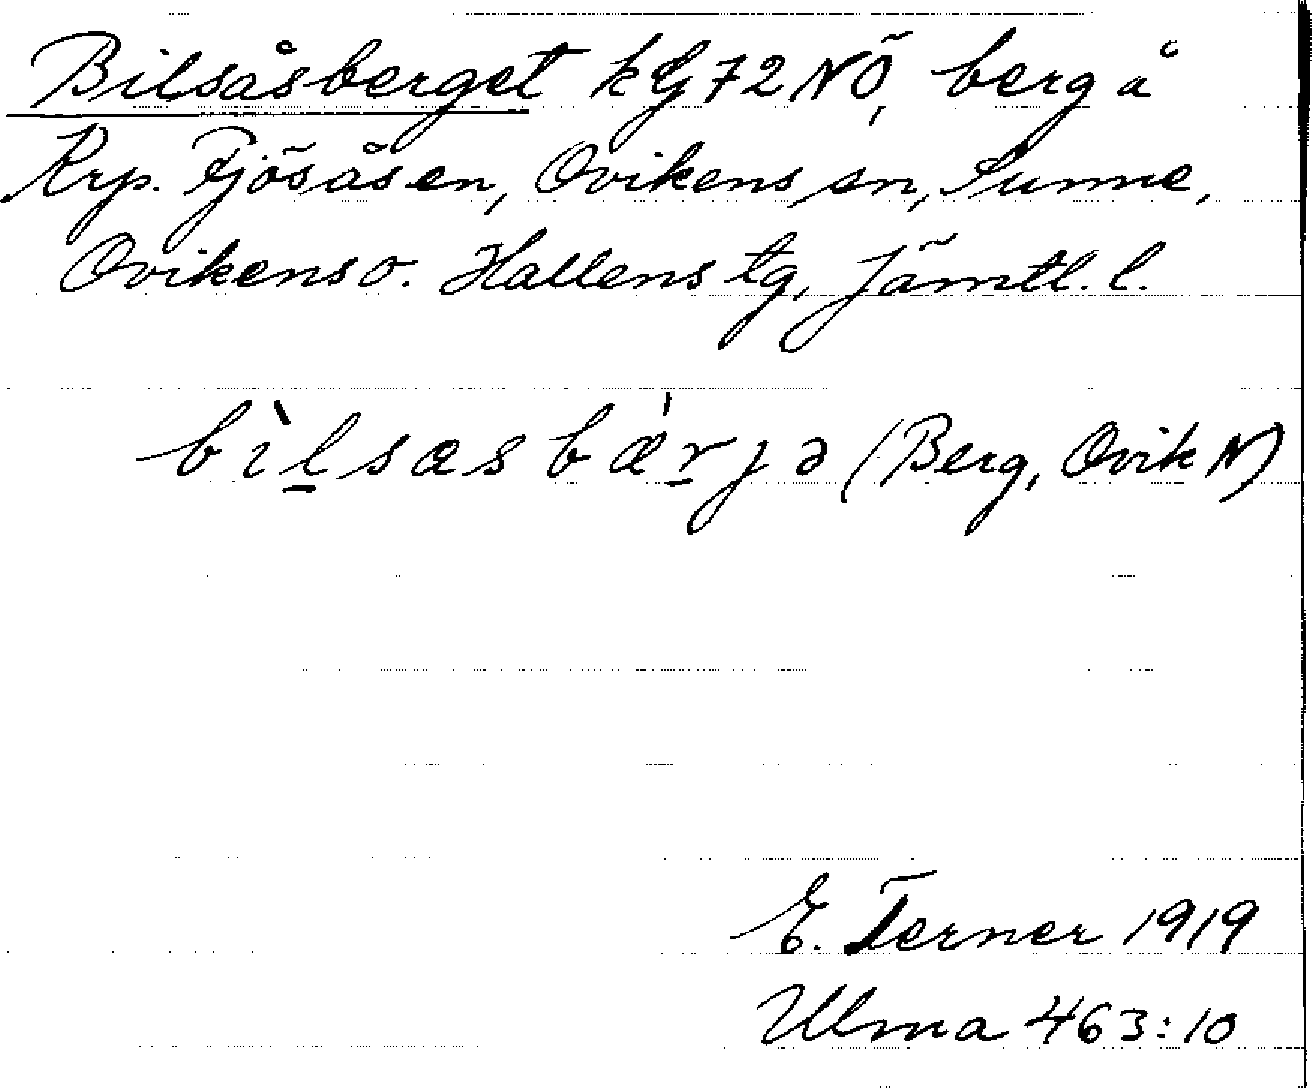 Bilsåsberget kg 72 NÖ, berg å
Krp. Fjösåsen, Ovikens sn, Sunne,
Ovikens o. Hallens tg, Jämtl. l.
bìl̠sasbær̠jə (Berg, Ovik N)
E. Terner 1919
Ulma 463:10